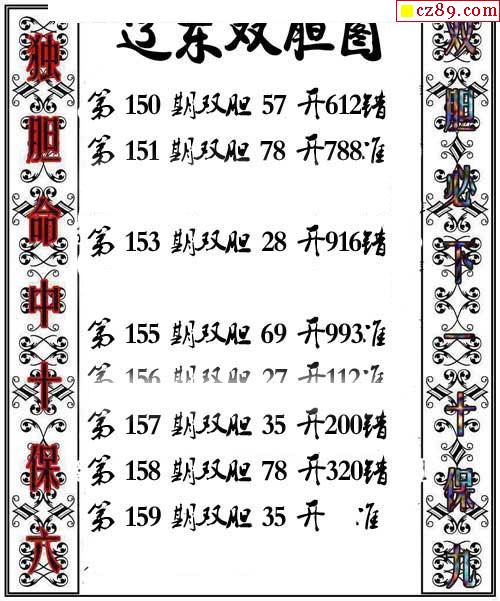 cz89.com
辽东双胆图
独胆命中十保六
第 150 期双胆 57 开612错
第 151 期双胆 78 开788准
第 153 期双胆 28 开916错
第 155 期双胆 69 开993准
第 156 期双胆 27 开112准
第 157 期双胆 35 开200错
第 158 期双胆 78 开320错
第 159 期双胆 35 开 准
双胆必下一十保九